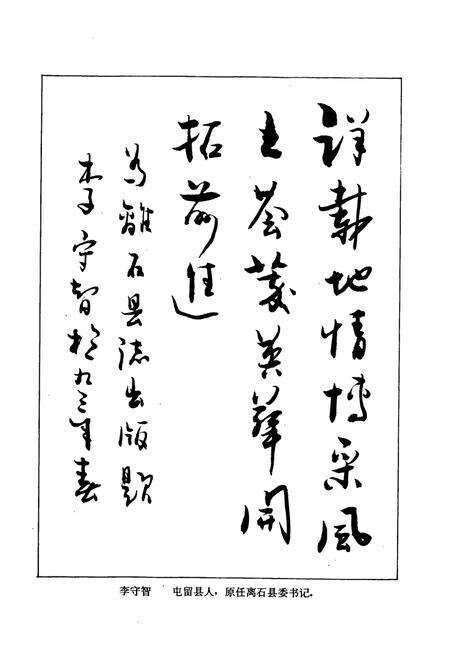 詳載地情博采風
土薈萃英華開
拓前進
为離石县志出版題
李守智於九三年春
李守智 屯留县人，原任离石县委书记。